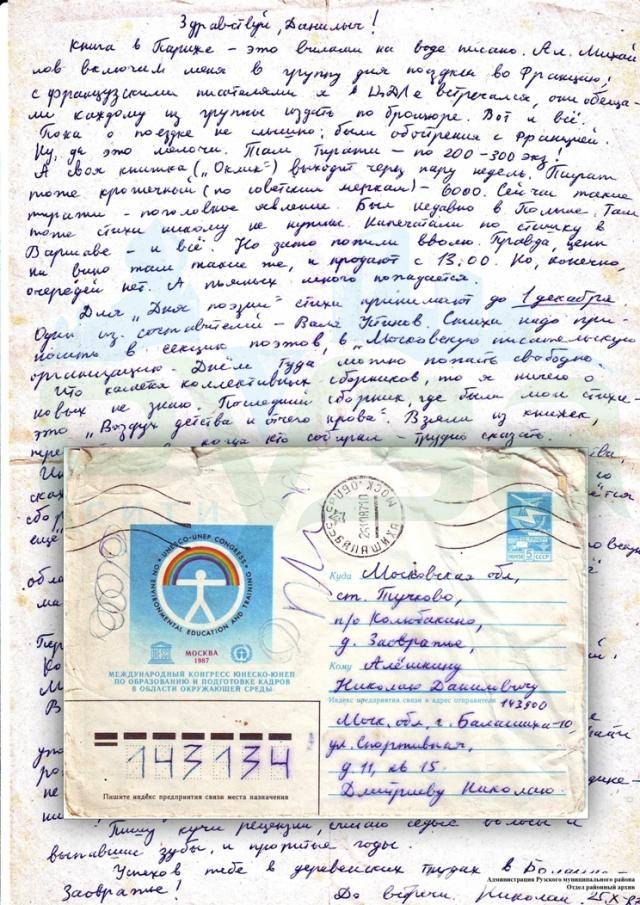 Здравствуй, Данилыч!
Книга в Париже – это вилами на воде писано. Ал. Михай
лов включил меня в группу для поездки во Францию,
с французскими писателями я в ЦДЛе встречался, они обеща-
ли каждому из группы издать по брошюре. Вот и всё.
Пока о поездке не слышно: были обострения с Францией.
Ну, да это мелочи. Там тиражи – по 200-300 экз!
А своя книжка („Оклик“) выходит через пару недель. Тираж
тоже крошечный (по советским меркам) – 6000. Сейчас такие
тиражи – поголовное явление. Был недавно в Польше. Там
тоже стихи никому не нужны. Напечатали по стишку в
Варшаве – и всё. Но зато попили вволю. Правда, цены
на вино там такие же, и продают с 13.00. Но, конечно,
очередей нет. А пьяных много попадается.
Для „Дня поэзии“ стихи принимают до 1 декабря
Один из составителей – Валя Устинов. Стихи надо при-
носить в секцию поэтов, в „Московскую писательскую
организацию. Днём туда можно попасть свободно.
Что касается коллективных сборников, то я ничего о
новых не знаю. Последний сборник, где были мои стихи –
это „Воздух детства и отчего крова“. Взяли из книжек,
когда кто собирал – трудно сказать.
UNESCO-UNEP CONGRESS
ENVIRONMENTAL EDUCATION AND TRAINING
МОСКВА
1987
МЕЖДУНАРОДНЫЙ КОНГРЕСС ЮНЕСКО-ЮНЕП
ПО ОБРАЗОВАНИЮ И ПОДГОТОВКЕ КАДРОВ
В ОБЛАСТИ ОКРУЖАЮЩЕЙ СРЕДЫ
БАЛАШИХА МОСК. ОБЛ.
5 СССР
Куда Московская обл,
ст. Тучково,
п/о Колюбакино,
д. Заовражье,
Кому Алёшкину
Николаю Даниловичу
Индекс предприятия связи и адрес отправителя 143900
Моск. обл, г. Балашиха-10,
ул. Спортивная,
д. 11, кв 15
Дмитриеву Николаю
143134
Пишите индекс предприятия связи места назначения
Пишу кучи рецензий, считаю седые волосы и
выпавшие зубы, и пропитые годы.
Успехов тебе в деревенских трудах в
Заовражье!
До встречи. Николай. 25.X
Администрация Рузского муниципального района
Отдел районный архив